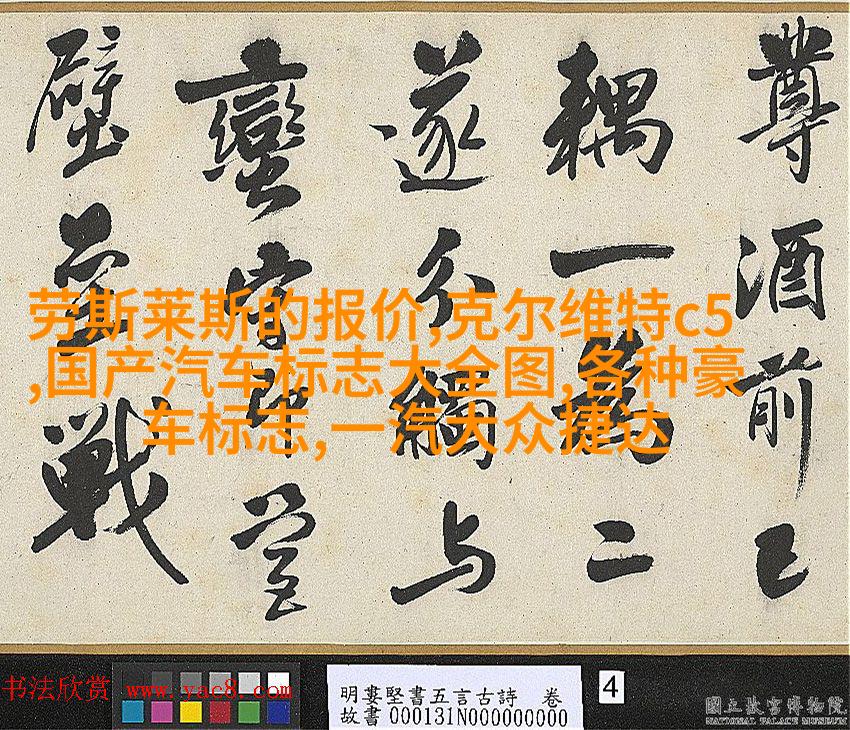 尊酒前已
耦一二
遂分与
蠻
壁戰
劳斯莱斯的报价,克尔维特c5
,国产汽车标志大全图,各种豪
车标志,一汽大众捷达
书法欣赏 www.yac8.com
明婁堅書五言古詩 卷
故書000131N000000000
4
國立故宮博物院
NATIONAL PALACE MUSEUM